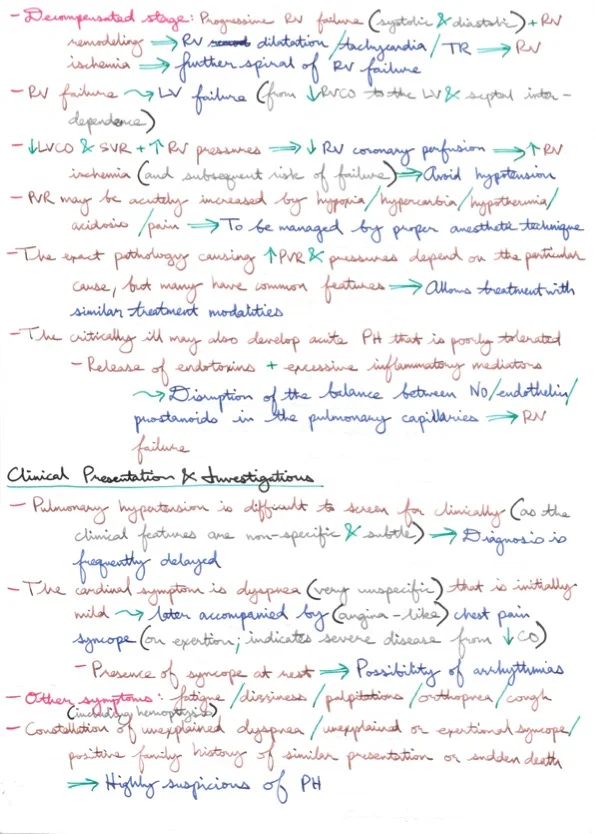 - Decompensated stage: Progressive RV failure (systolic & diastolic) + RV
remodeling ⟹ RV dilatation / tachycardia / TR ⟹ RV
ischemia ⟹ further spiral of RV failure
- RV failure ⤳ LV failure (from ↓RVCO to the LV & septal inter-
dependence)
- ↓LVCO & SVR + ↑RV pressures ⟹ ↓RV coronary perfusion ⟹ ↑RV
ischemia (and subsequent risk of failure) ⟹ Avoid hypotension
- PVR may be acutely increased by hypoxia / hypercarbia / hypothermia /
acidosis / pain ⟹ To be managed by proper anesthetic technique
- The exact pathology causing ↑PVR & pressures depend on the particular
cause, but many have common features ⟹ Allows treatment with
similar treatment modalities
- The critically ill may also develop acute PH that is poorly tolerated
- Release of endotoxins + excessive inflammatory mediators
⤳ Disruption of the balance between NO/endothelin/
prostanoids in the pulmonary capillaries ⟹ RV
failure
Clinical Presentation & Investigations
- Pulmonary hypertension is difficult to screen for clinically (as the
clinical features are non-specific & subtle) ⟹ Diagnosis is
frequently delayed
- The cardinal symptom is dyspnea (very unspecific) that is initially
mild ⤳ later accompanied by (angina-like) chest pain
syncope (on exertion; indicates severe disease from ↓CO)
- Presence of syncope at rest ⟹ Possibility of arrhythmias
- Other symptoms: fatigue / dizziness / palpitations / orthopnea / cough
(including hemoptysis)
- Constellation of unexplained dyspnea / unexplained or exertional syncope /
positive family history of similar presentation or sudden death
⟹ Highly suspicious of PH